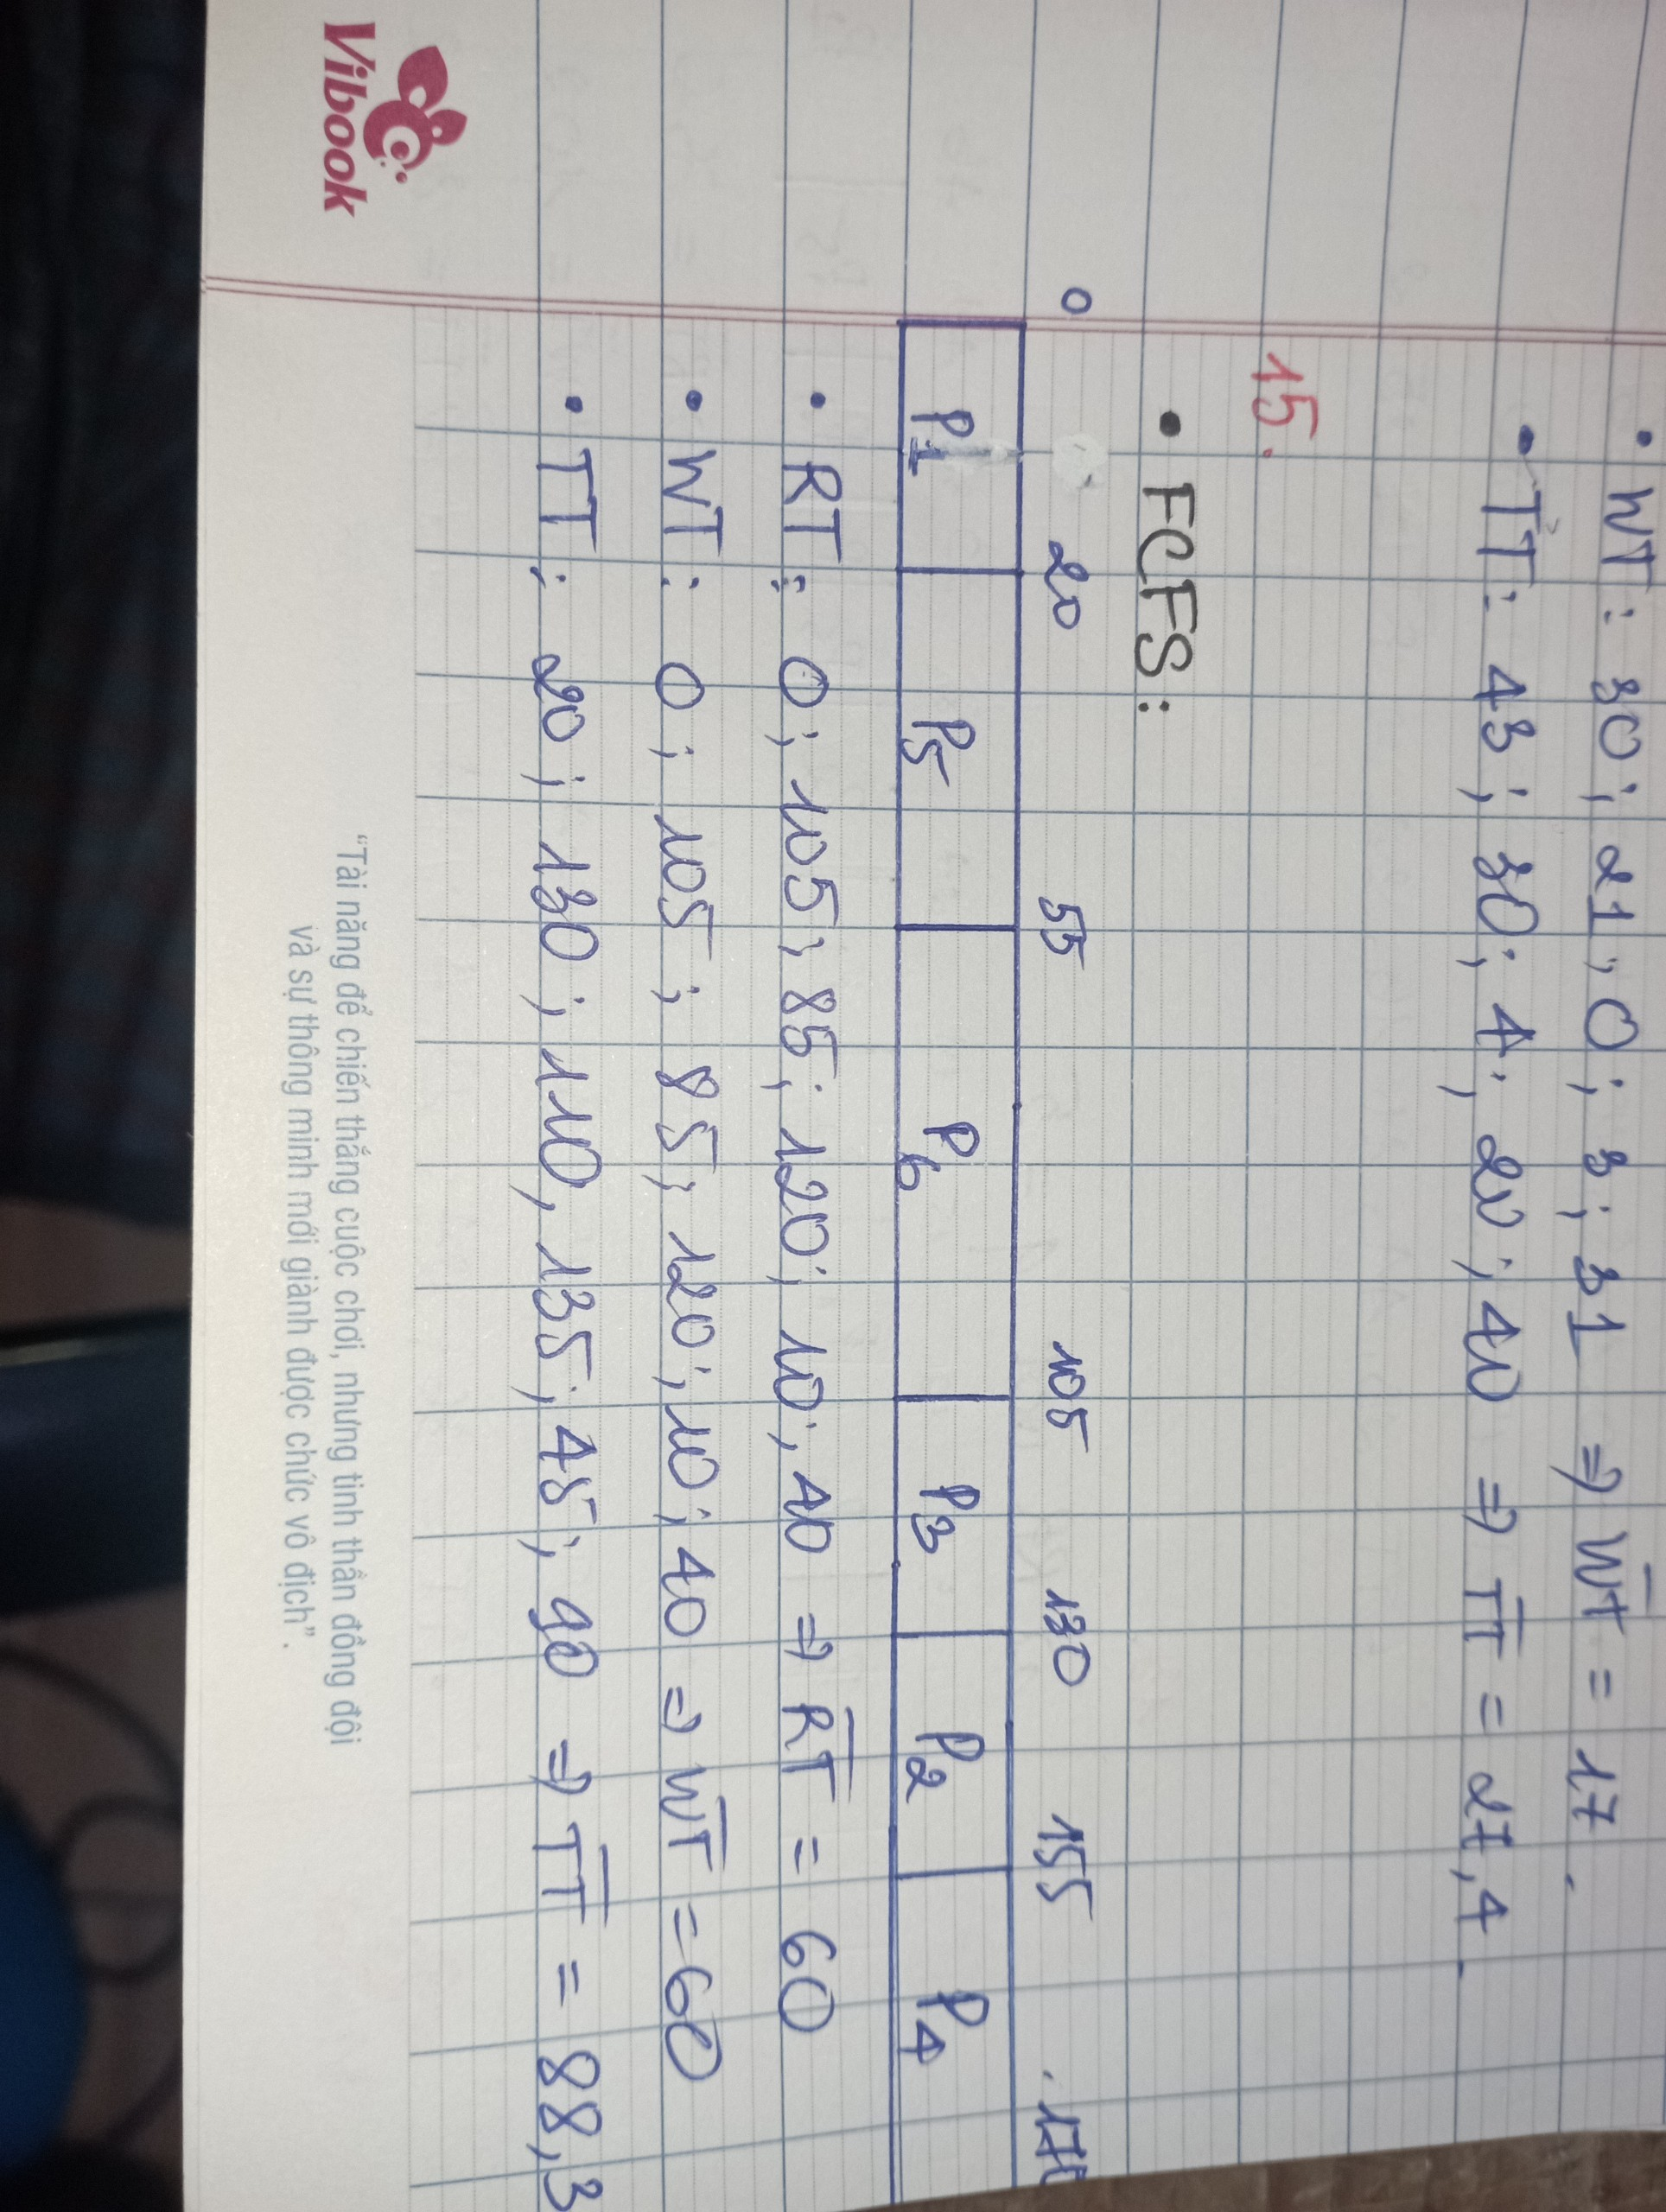 • WT : 30 ; 21 ; 0 ; 3 ; 31 ⇒ W̅T̅ = 17.
• TT : 43 ; 30 ; 4 ; 20 ; 40 ⇒ T̅T̅ = 27,4.
15.
• FCFS :
0 20 55 105 130 155
P1 P5 P6 P3 P2 P4
• RT : 0 ; 105 ; 85 ; 120 ; 10 ; 40 ⇒ R̅T̅ = 60
• WT : 0 ; 105 ; 85 ; 120 ; 10 ; 40 ⇒ W̅T̅ = 60
• TT : 20 ; 130 ; 110 , 135 ; 45 ; 90 ⇒ T̅T̅ = 88,3
Vibook
"Tài năng để chiến thắng cuộc chơi, nhưng tinh thần đồng đội
và sự thông minh mới giành được chức vô địch".